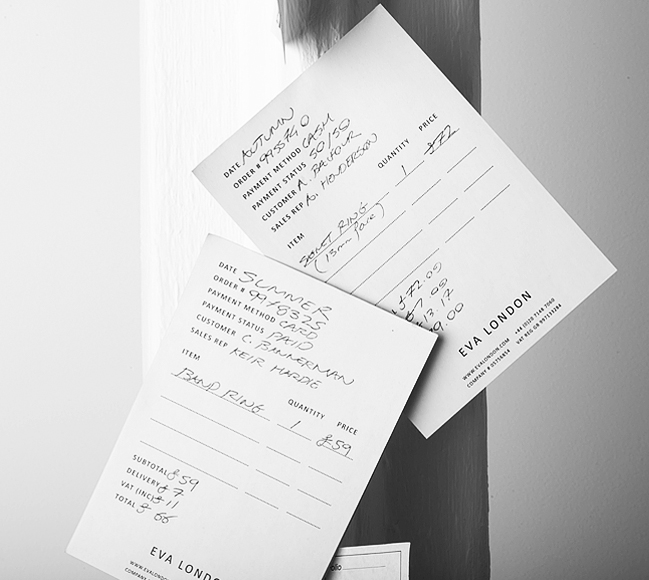 DATE AUTUMN
ORDER # 995540
PAYMENT METHOD CASH
PAYMENT STATUS 50/50
CUSTOMER A. BALFOUR
SALES REP A. HENDERSON
ITEM QUANTITY PRICE
RING 1 £72
(13mm face)
£72.00
7.00
13.17
9.00
EVA LONDON
WWW.EVALONDON.COM +44 (0)20 7148 7060
COMPANY # 05756814 VAT REG GB
DATE SUMMER
ORDER # 9948325
PAYMENT METHOD CARD
PAYMENT STATUS PAID
CUSTOMER C. BANNERMAN
SALES REP KEIR HARDIE
ITEM QUANTITY PRICE
BAND RING 1 £59
SUBTOTAL £59
DELIVERY £7
VAT (INC) £11
TOTAL £66
EVA LONDO
WWW.EVALONDON
COMPANY #
olio